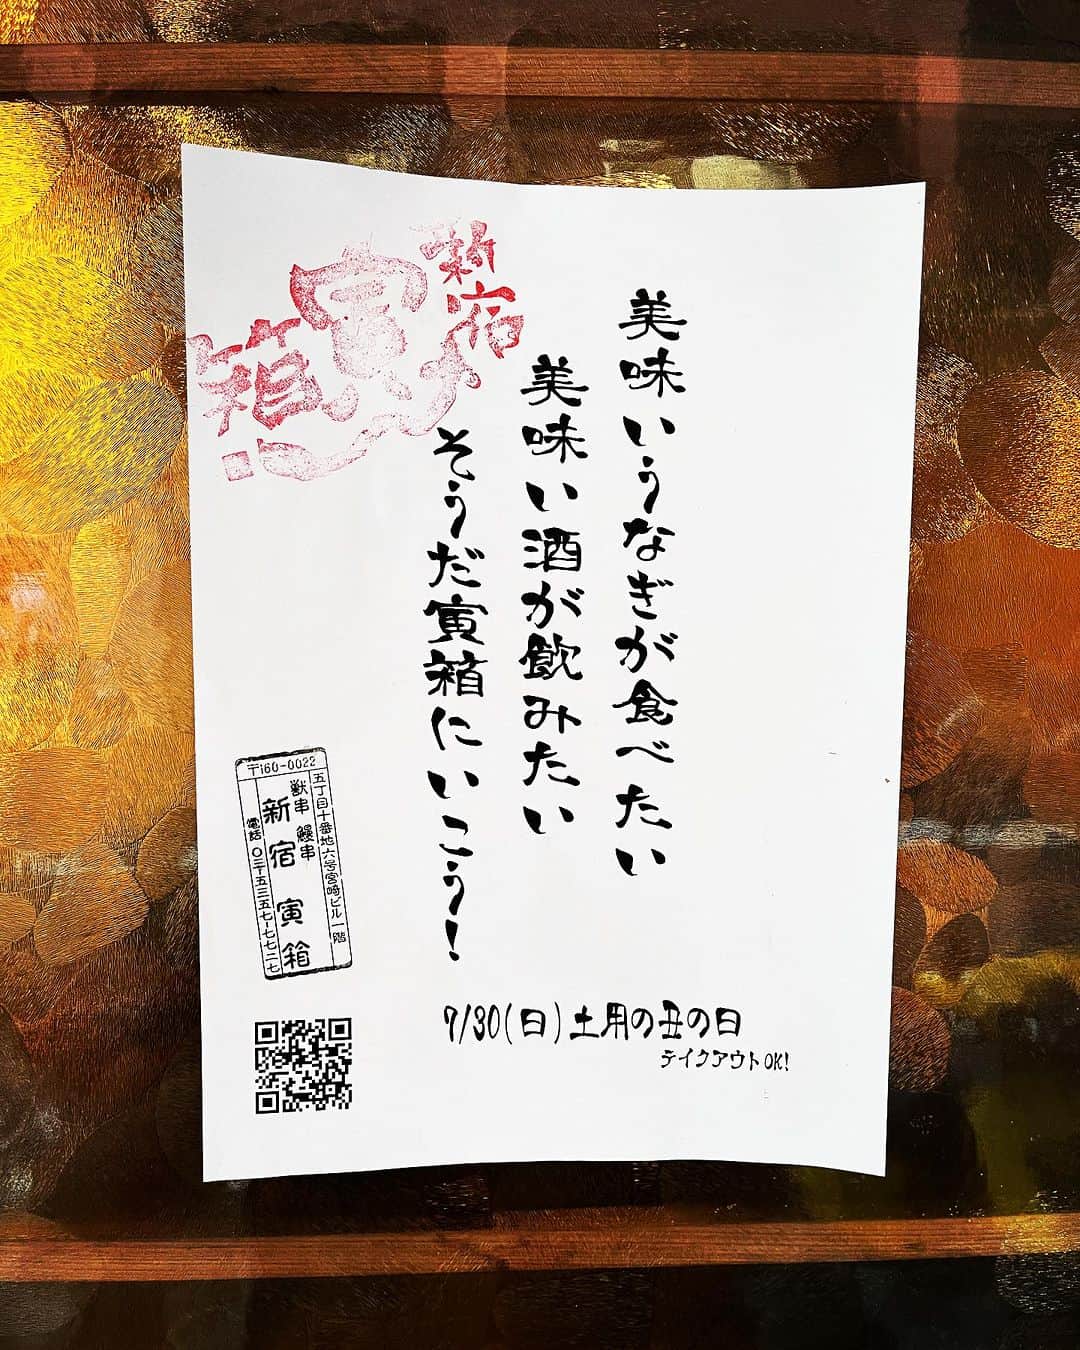 新宿
寅
箱
美味いうなぎが食べたい
美味い酒が飲みたい
そうだ寅箱にいこう!
〒160-0022
五丁目十番地六号宮崎ビル一階
獣串 鰻串
新宿 寅箱
電話 〇三-五三五七-七七二七
7/30(日)土用の丑の日
テイクアウトOK!